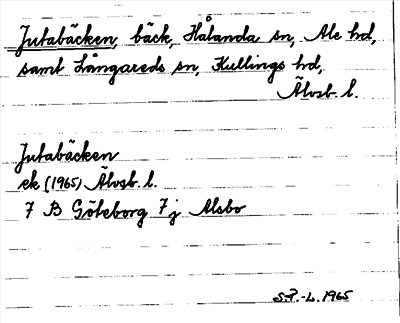 Jutabäcken, bäck, Hålanda sn, Ale hd,
samt Långareds sn, Kullings hd,
Älvsb. l.
Jutabäcken
ek (1965) Älvsb. l.
7 B Göteborg 7 j Alsbo
S.P.-L. 1965